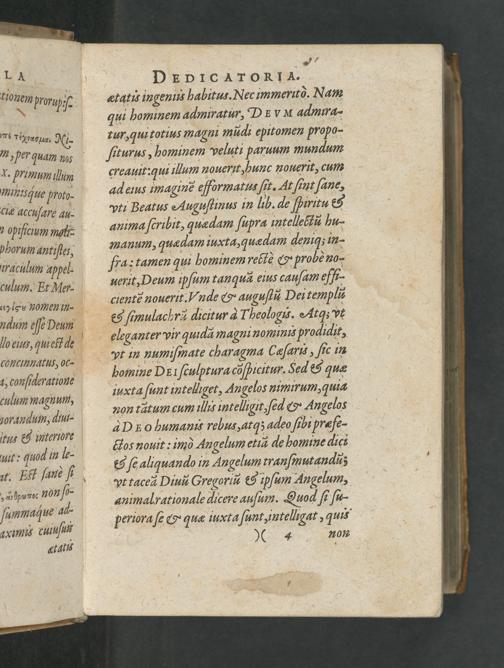 LA
tionem prorup:sſ.
Ni-
m, per quam nos
x. primum illum
ominisque proto-
ciæ accusare au-
n opificium moli-
phorum antistes,
miraculum appel-
culum. Et Mer-
nomen in-
ndum esse Deum
llo eius, qui est de
concinnatus, oc-
a, consideratione
culum magnum,
norandum, diui-
itus & interiore
tuit: quod in le-
nt. Est sanè si
, ἄνθρωπος non so-
summaque ad-
aximis cuiusuis
ætatis
DEDICATORIA.
ætatis ingeniis habitus. Nec immeritò. Nam
qui hominem admiratur, DEVM admira-
tur, qui totius magni mũdi epitomen propo-
siturus, hominem veluti paruum mundum
creauit: qui illum nouerit, hunc nouerit, cum
ad eius imaginẽ efformatus sit. At sint sane,
vti Beatus Augustinus in lib. de spiritu &
anima scribit, quædam supra intellectũ hu-
manum, quædam iuxta, quædam deniq; in-
fra: tamen qui hominem rectè & probè no-
uerit, Deum ipsum tanquã eius causam effi-
cientẽ nouerit. Vnde & augustũ Dei templũ
& simulachrũ dicitur à Theologis. Atq; vt
eleganter vir quidã magni nominis prodidit,
vt in numismate charagma Cæsaris, sic in
homine DEI sculptura cõspicitur. Sed & quæ
iuxta sunt intelliget, Angelos nimirum, quia
non tãtum cum illis intelligit, sed & Angelos
à DEO humanis rebus, atq; adeo sibi præfe-
ctos nouit: imò Angelum etiã de homine dici
& se aliquando in Angelum transmutandũ;
vt taceã Diuũ Gregoriũ & ipsum Angelum,
animal rationale dicere ausum. Quod si su-
periora se & quæ iuxta sunt, intelligat, quis
)( 4 non